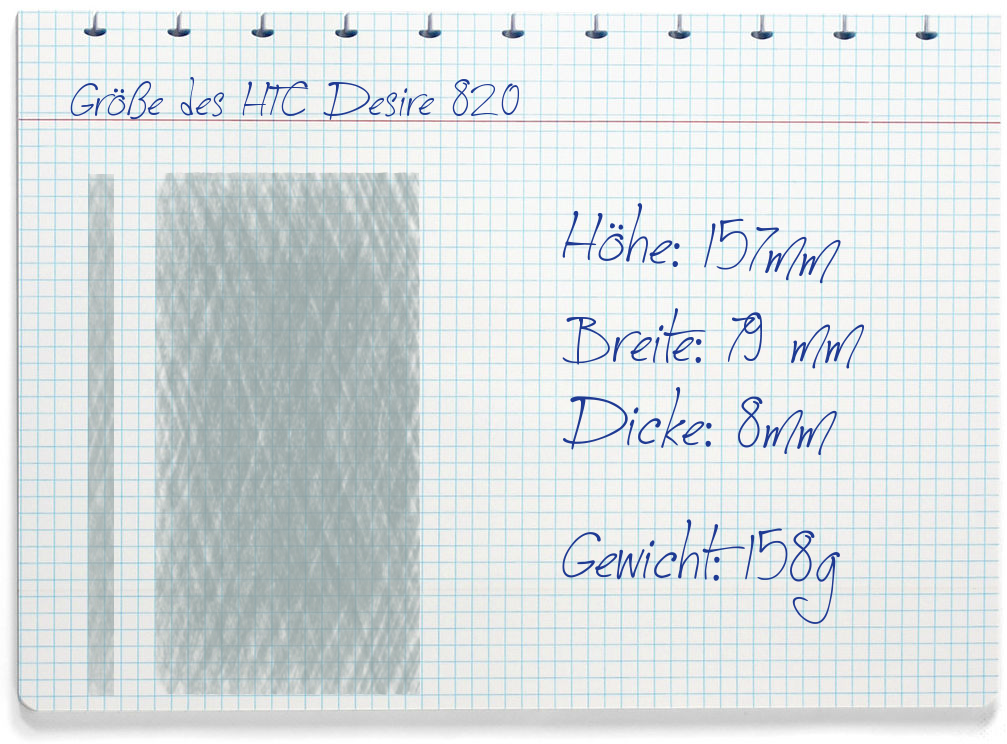 Größe des HTC Desire 820
Höhe: 157mm
Breite: 79 mm
Dicke: 8mm
Gewicht: 158g